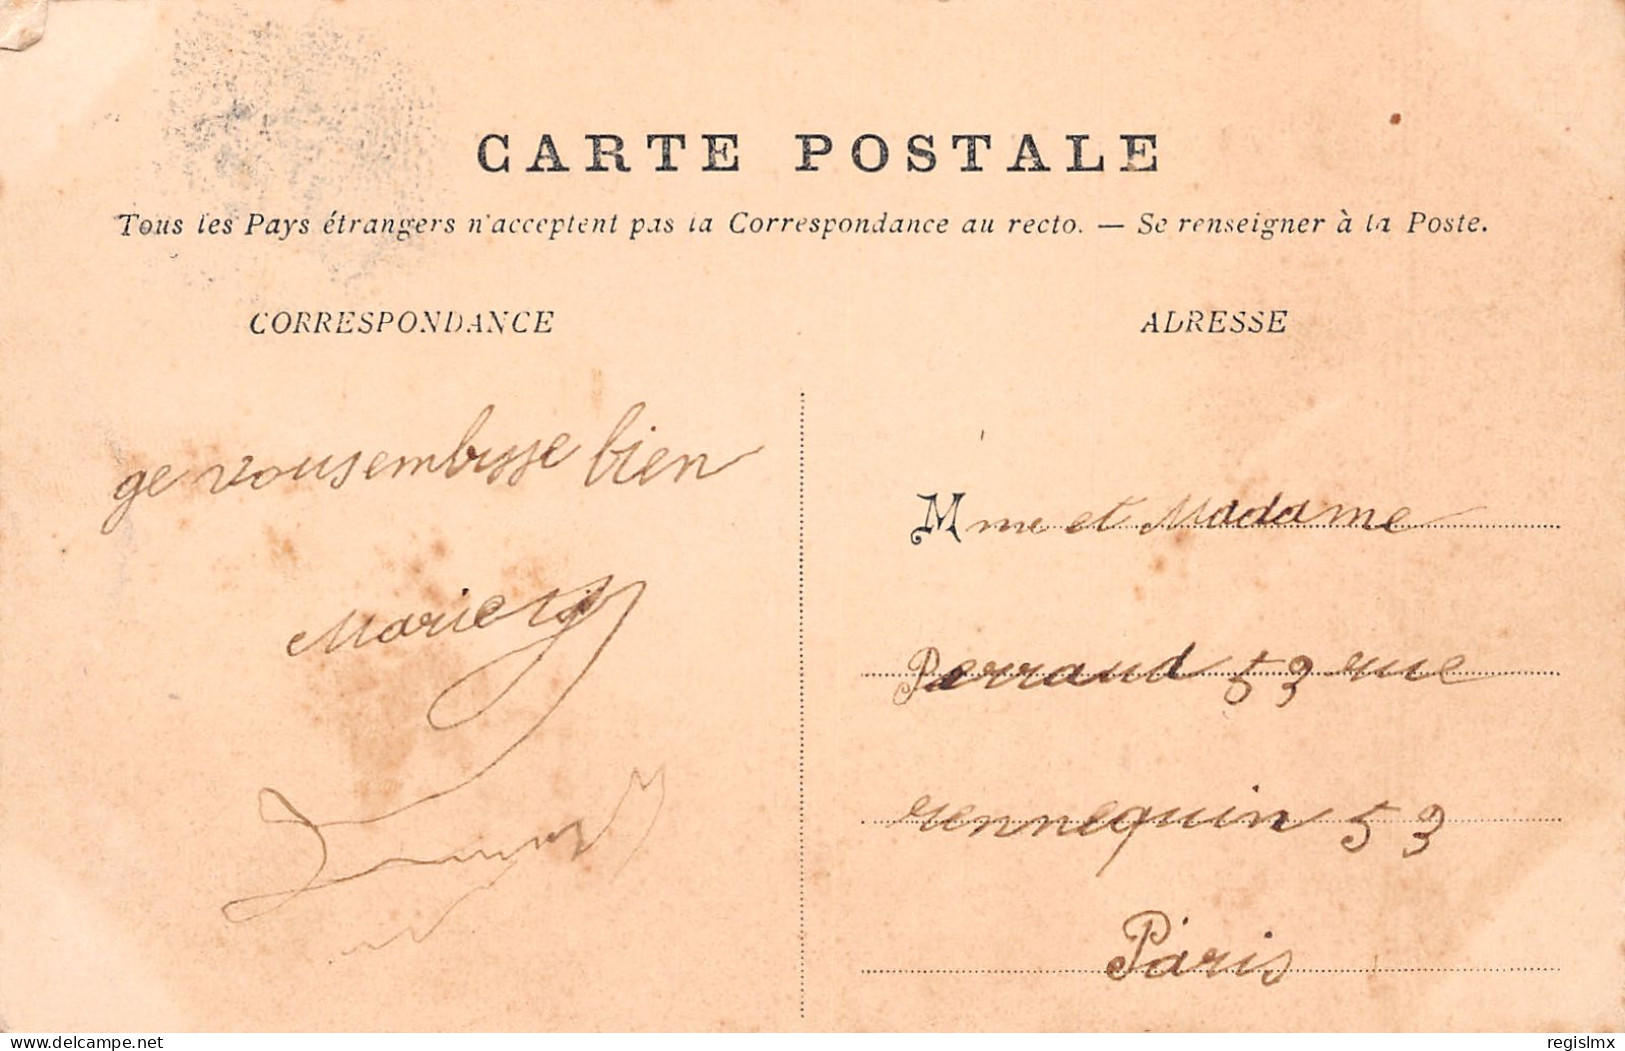 CARTE POSTALE
Tous les Pays étrangers n'acceptent pas la Correspondance au recto. — Se renseigner à la Poste.
CORRESPONDANCE
ge vousembrsse bien
Marie
ADRESSE
M me et Madame
Perraud 53 rue
rennequin 53
Paris
www.delcampe.net
regislmx